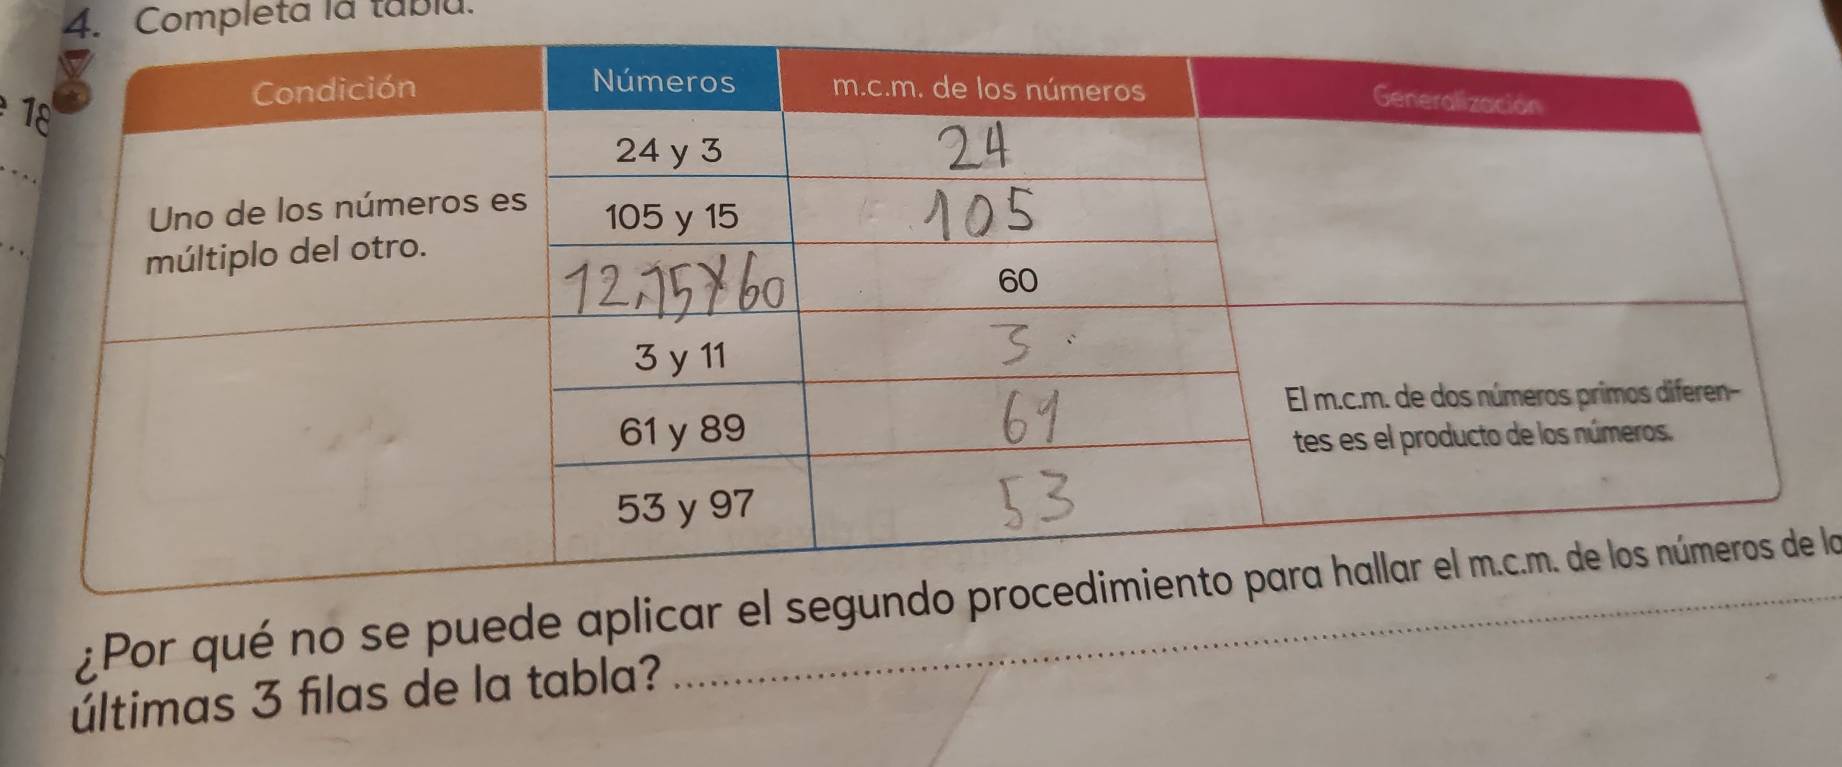 4. Completa la tabla.
18
Condición
Números
m.c.m. de los números
Generalización
Uno de los números es
múltiplo del otro.
24 y 3
24
105 y 15
105
12,15 y 60
60
3 y 11
3
61 y 89
61
53 y 97
53
El m.c.m. de dos números primos diferen-
tes es el producto de los números.
¿Por qué no se puede aplicar el segundo procedimiento para hallar el m.c.m. de los números de la
últimas 3 filas de la tabla?